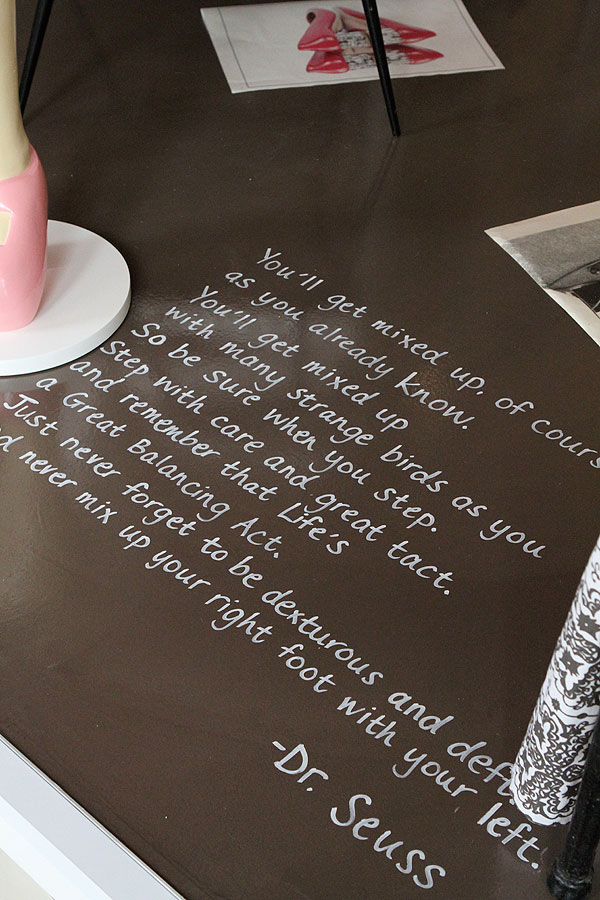 You'll get mixed up. of cours
as you already know.
You'll get mixed up
with many strange birds as you
So be sure when you step.
Step with care and great tact.
and remember that Life's
a Great Balancing Act.
Just never forget to be dexturous and deft
nd never mix up your right foot with your left.
-Dr. Seuss